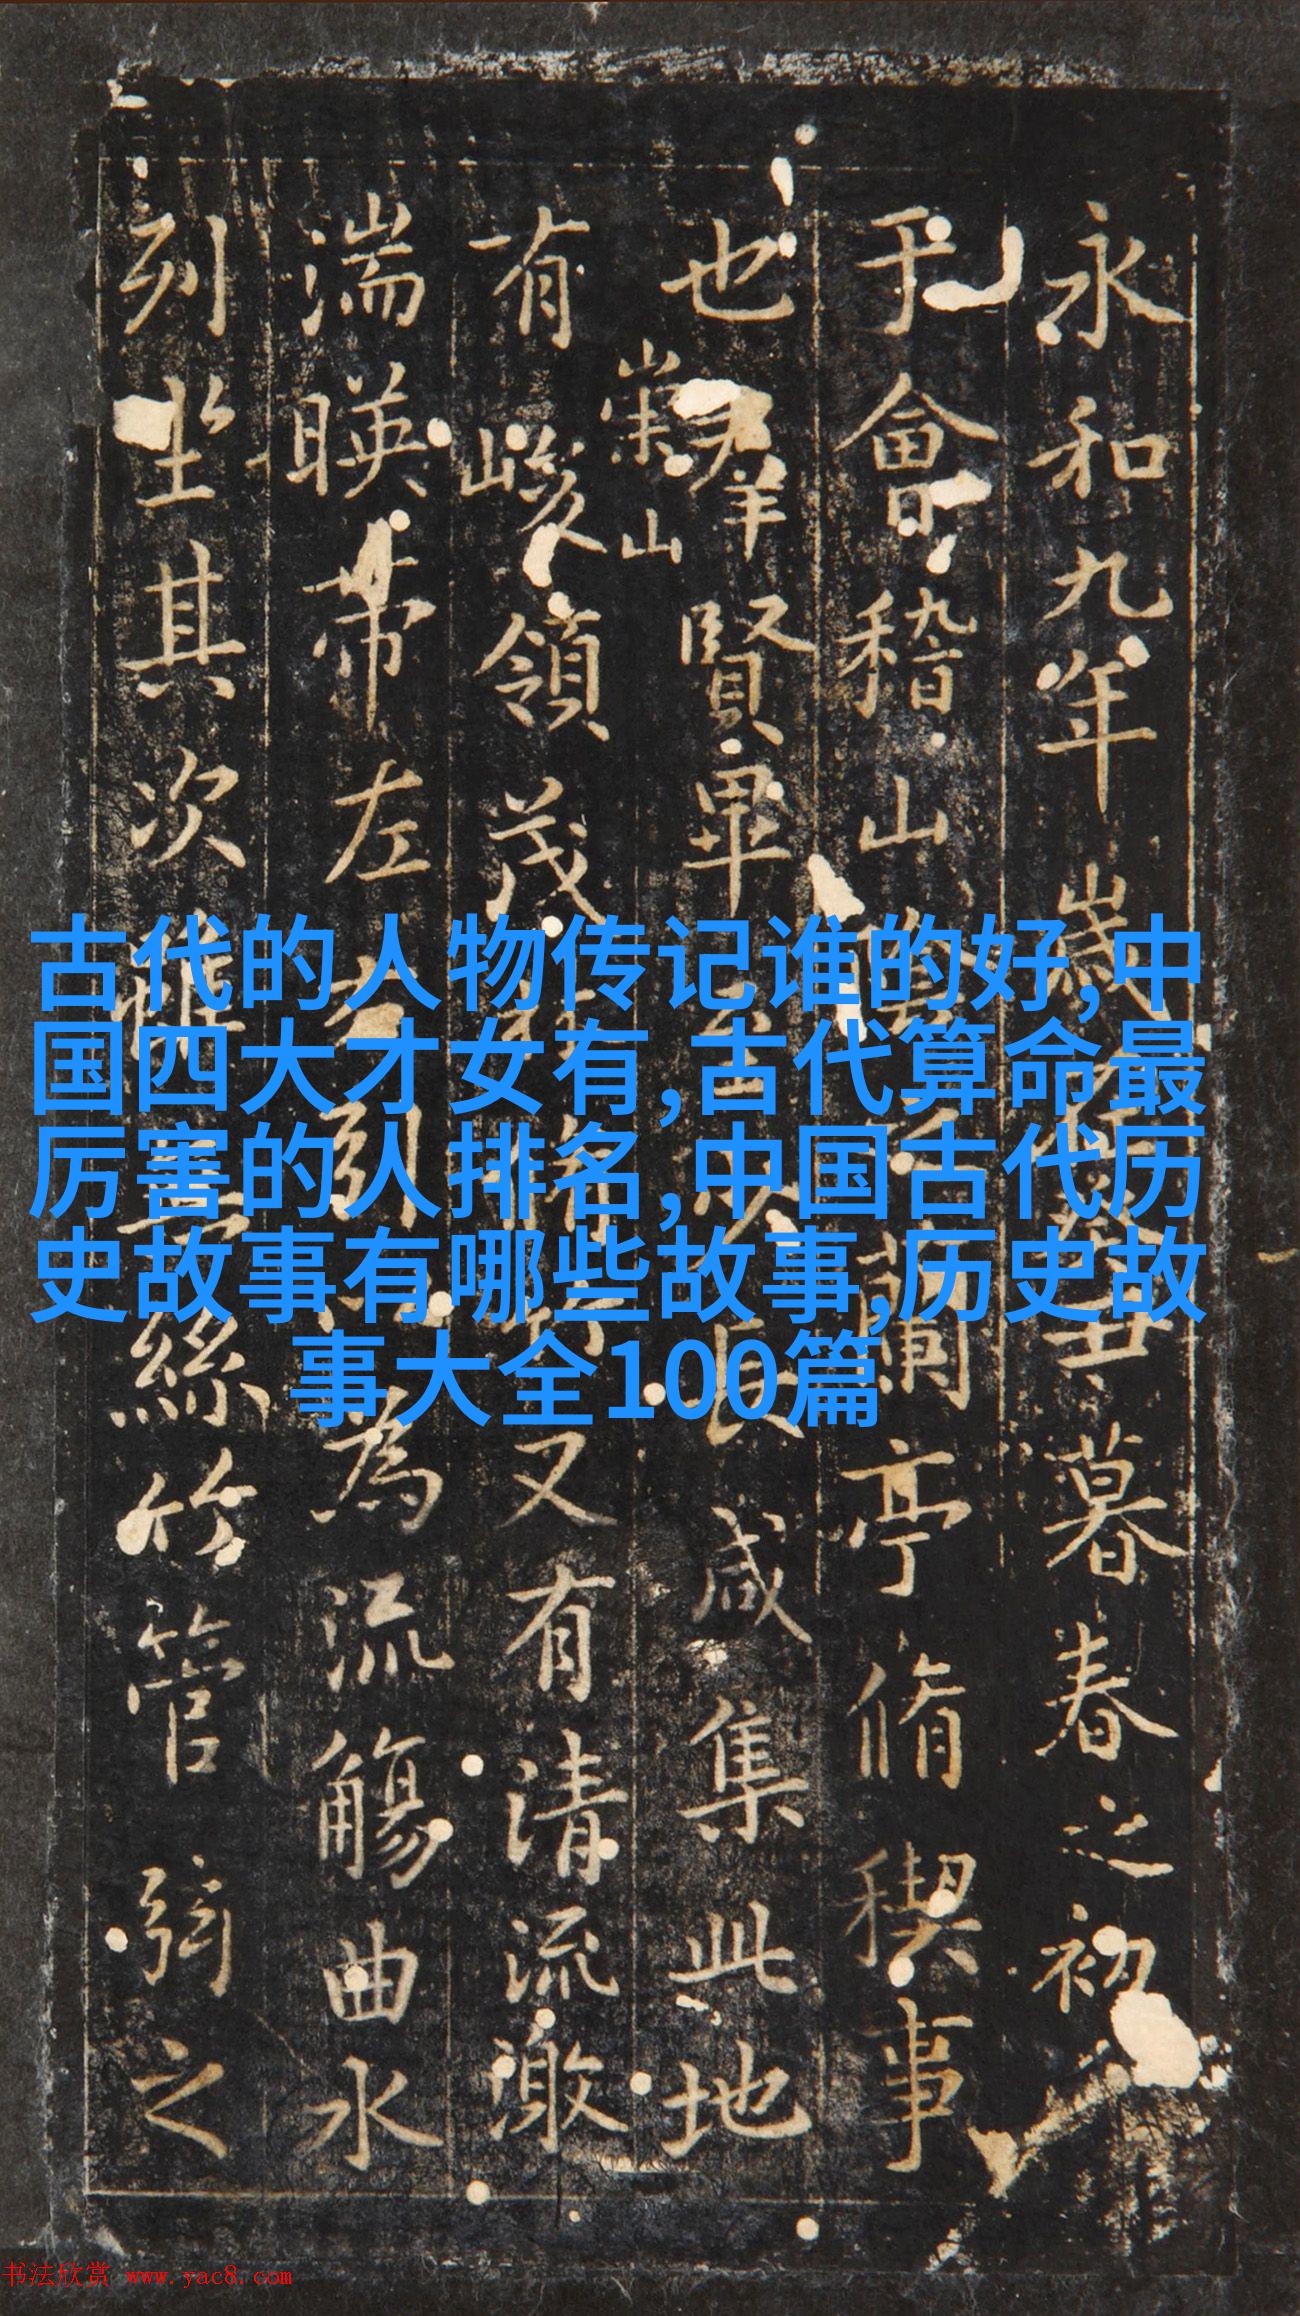 永和九年歲在癸丑暮春之初
于會稽山陰之蘭亭脩稧事
也羣賢畢至少長咸集此地
崇山
有峻領茂林脩竹又有清流激
湍暎帶左右引以為流觴曲水
列坐其次雖無絲竹管弦之
古代的人物传记谁的好,中
国四大才女有,古代算命最
厉害的人排名,中国古代历
史故事有哪些故事,历史故
事大全100篇
书法欣赏 www.yac8.com